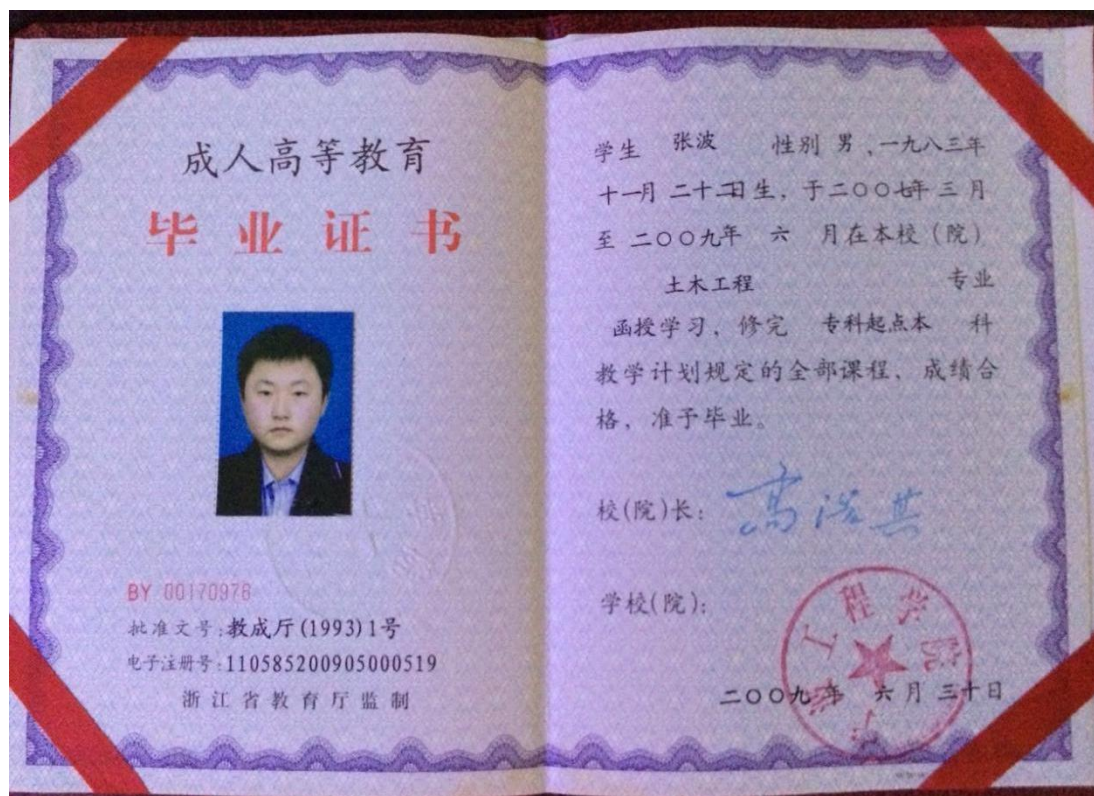 成人高等教育
毕业证书
BY 00170978
批准文号:教成厅(1993)1号
电子注册号:110585200905000519
浙江省教育厅监制
学生 张波 性别 男、一九八三年
十一月 二十二日生，于二〇〇七年 三 月
至 二〇〇九年 六 月在本校(院)
土木工程 专业
函授学习，修完 专科起点本 科
教学计划规定的全部课程、成绩合
格，准予毕业。
校(院)长:
学校(院):
工程学院
二〇〇九年 六月 三十日